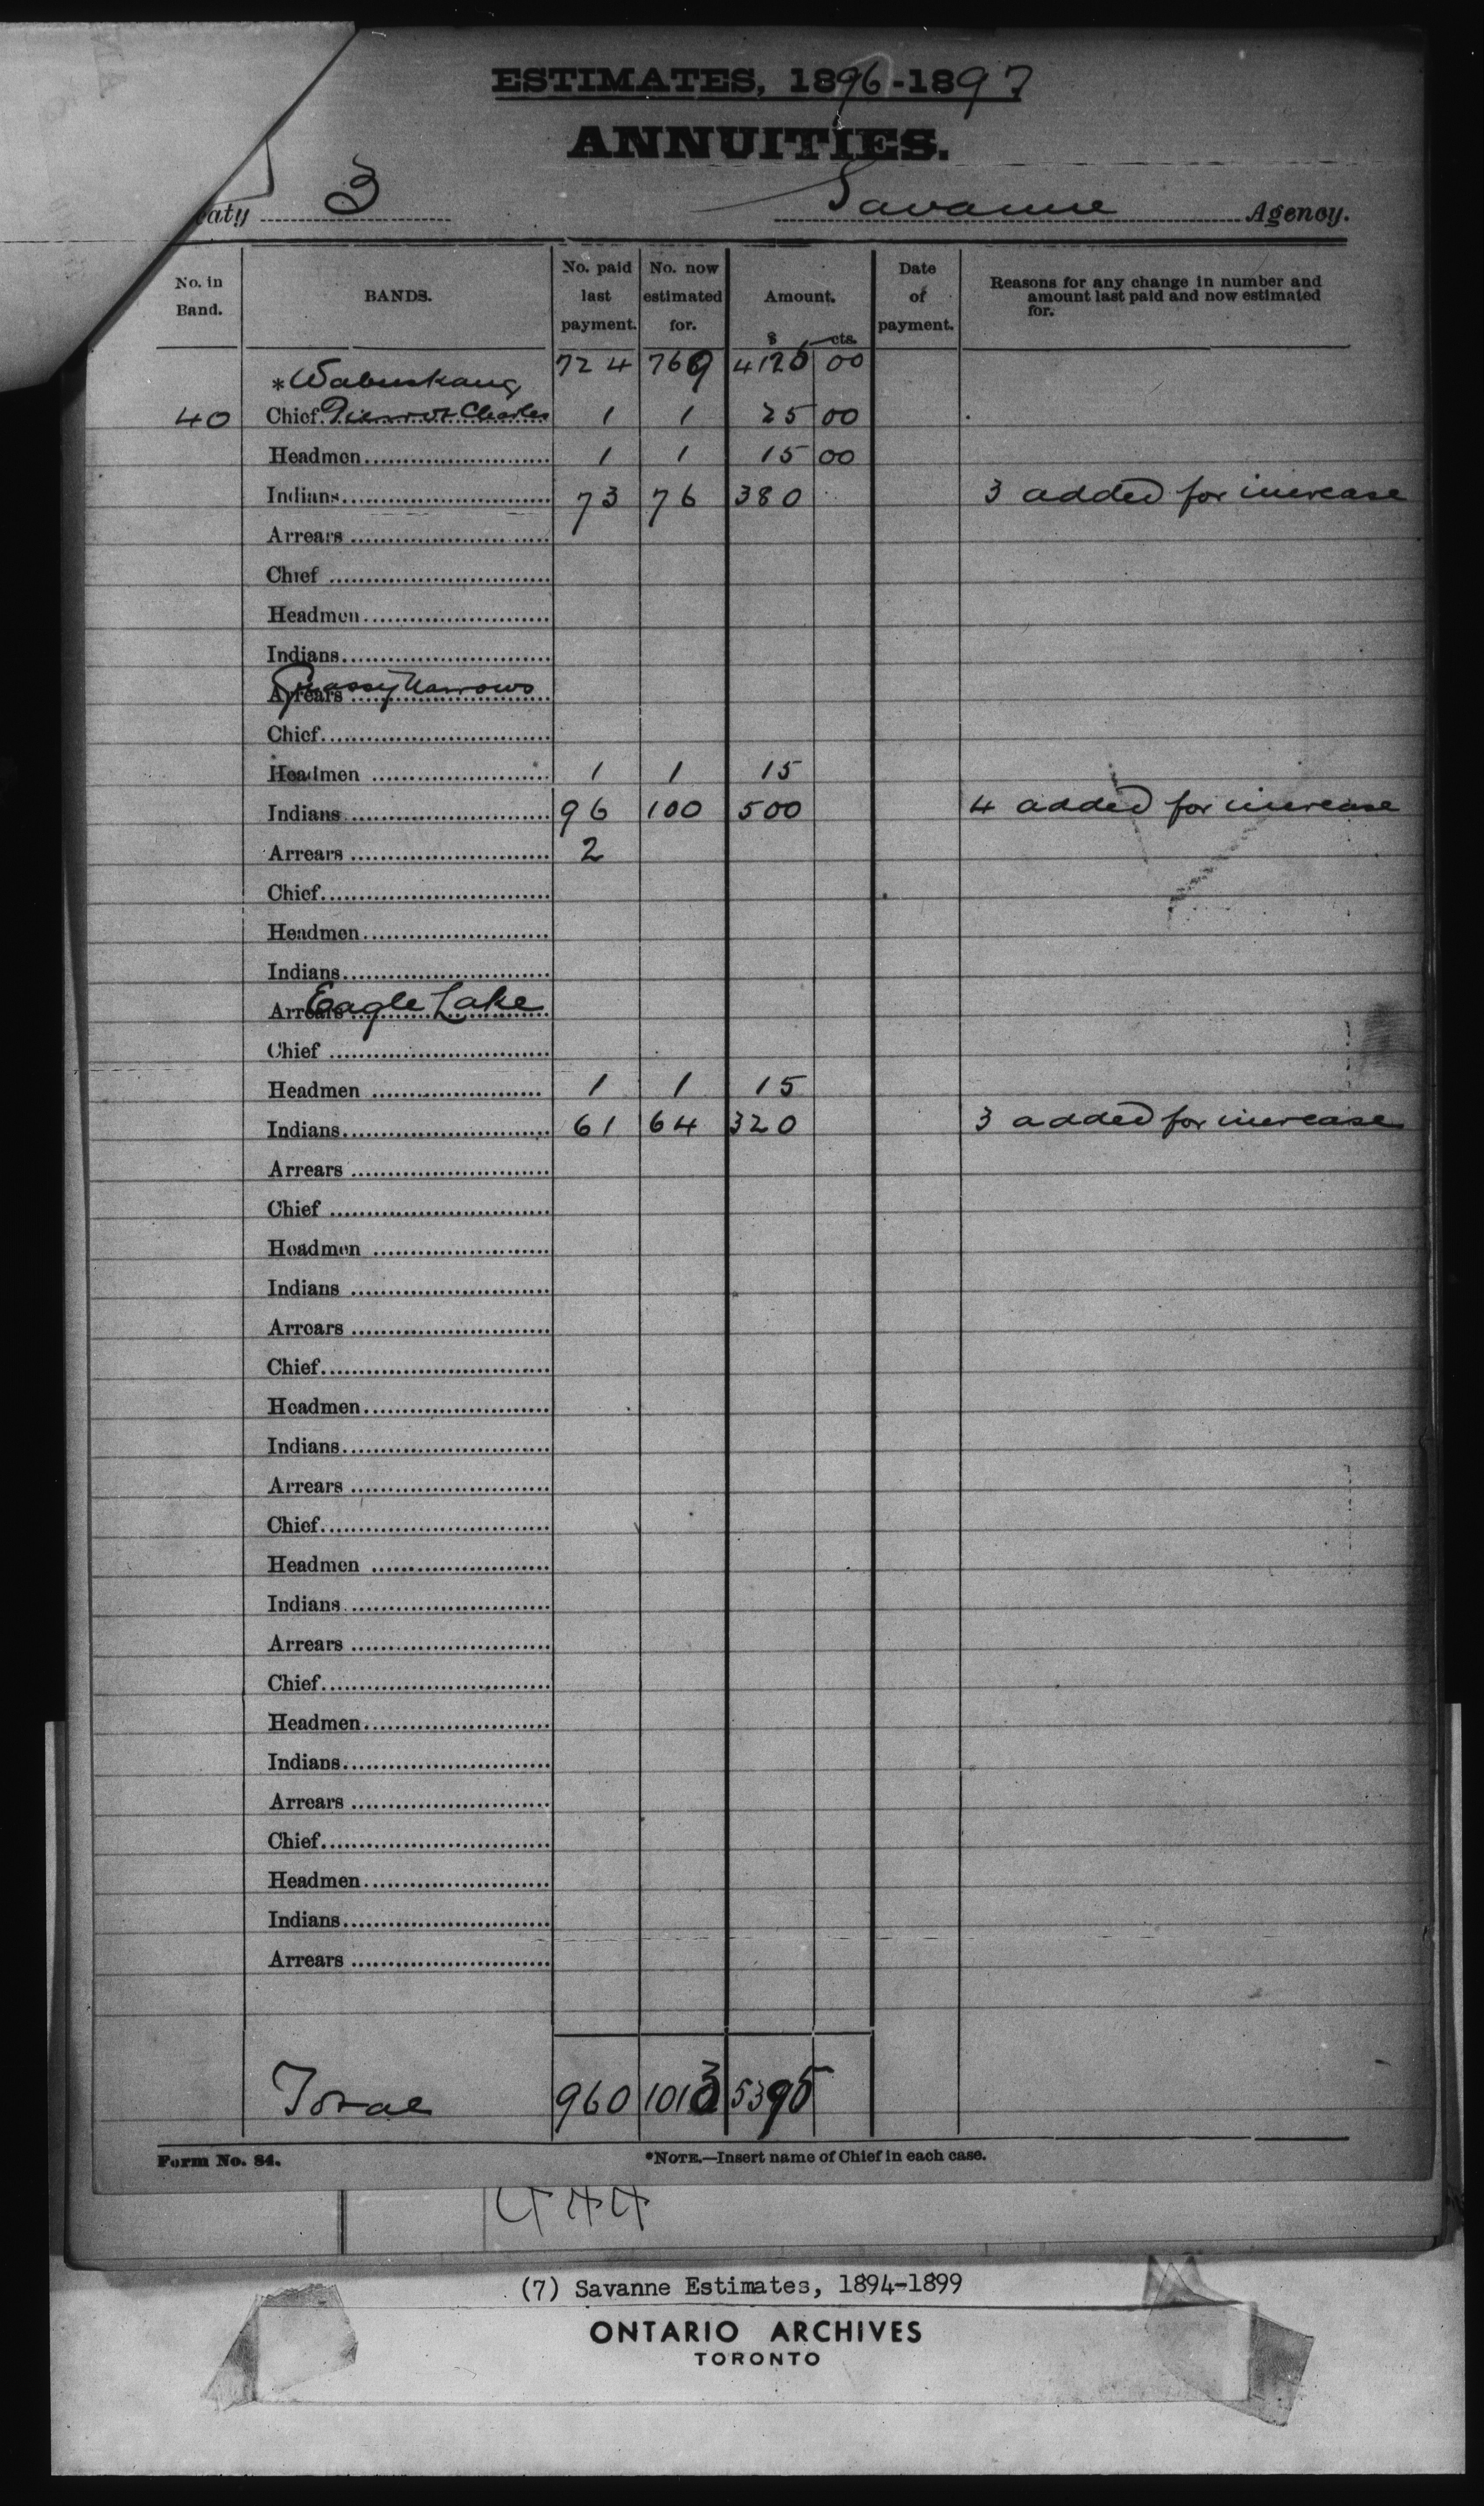 ESTIMATES, 1896-1897
ANNUITIES.
aty 3 Savanne Agency.
No. in Band. BANDS. No. paid last payment. No. now estimated for. Amount. $ cts. Date of payment. Reasons for any change in number and amount last paid and now estimated for.
724 769 4125 00
*Wabuskang
40 Chief Pierrot Charles 1 1 25 00
Headmen 1 1 15 00
Indians 73 76 380 3 added for increase
Arrears
Chief
Headmen
Indians
Arrears Grassy Narrows
Chief
Headmen 1 1 15
Indians 96 100 500 4 added for increase
Arrears 2
Chief
Headmen
Indians
Arrears Eagle Lake
Chief
Headmen 1 1 15
Indians 61 64 320 3 added for increase
Arrears
Chief
Headmen
Indians
Arrears
Chief
Headmen
Indians
Arrears
Chief
Headmen
Indians
Arrears
Chief
Headmen
Indians
Arrears
Chief
Headmen
Indians
Arrears
Total 960 1013 5395
Form No. 84. *NOTE.—Insert name of Chief in each case.
(7) Savanne Estimates, 1894-1899
ONTARIO ARCHIVES
TORONTO